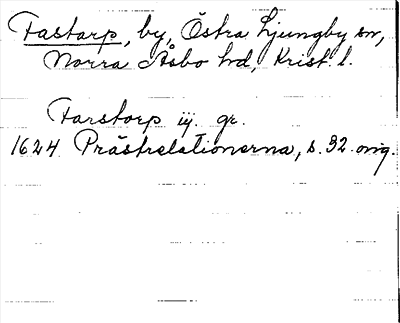 Fastarp, by, Östra Ljungby sn,
Norra Åsbo hd, Krist. l.
Farstorp iij. gr.
1624 Prästrelationerna, s. 92. orig.